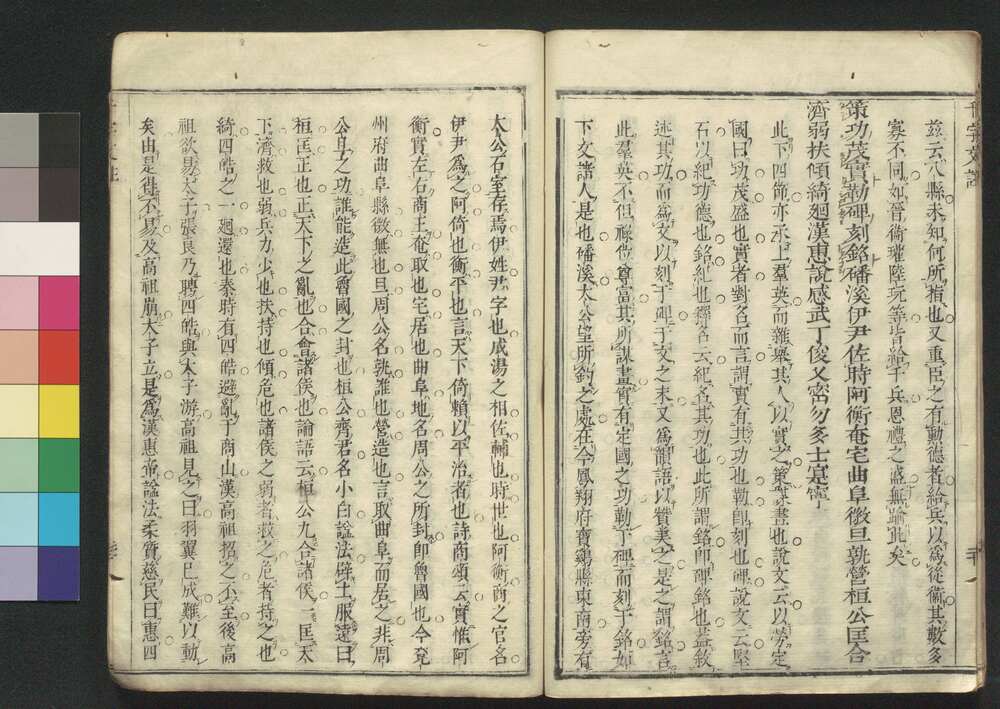 茲云八縣未知何所指也又重臣之有勳德者給兵以為從衞其數多
寡不同如晉衞瓘陸玩等皆給千兵恩禮之盛無踰此矣
策功茂實勒碑刻銘磻溪伊尹佐時阿衡奄宅曲阜微旦孰營桓公匡合
濟弱扶傾綺廻漢惠說感武丁俊乂密勿多士寔寧
此下四節亦承上羣英而雜舉其人以實之策謀畫也說文云以勞定
國曰功茂盛也實者對名而言謂實有其功也勒卽刻也碑說文云堅
石以紀功德也銘紀也釋名云紀名其功也此所謂銘卽碑銘也蓋敘
述其功而為文以刻于碑于文之末又為韻語以贊美之是之謂銘言
此羣英不但祿位尊富其所謀畫實有定國之功勒于碑而刻于銘如
下文諸人是也磻溪太公望所釣之處在今鳳翔府寶鷄縣東南旁有
太公石室存焉伊姓尹字也成湯之相佐輔也時世也阿衡商之官名
伊尹為之阿倚也衡平也言天下倚賴以平治者也詩商頌云實惟阿
衡實左右商王奄取也宅居也曲阜地名周公之所封卽魯國也今兗
州府曲阜縣微無也旦周公名孰誰也營造也言取曲阜而居之非周
公旦之功誰能造此魯國之封也桓公齊君名小白謚法辟土服遠曰
桓匡正也正天下之亂也合會諸侯也論語云桓公九合諸侯一匡天
下濟救也弱兵力少也扶持也傾危也諸侯之弱者救之危者持之也
綺四皓之一廻還也秦時有四皓避亂于商山漢高祖招之不至後高
祖欲易太子張良乃聘四皓與太子游高祖見之曰羽翼已成難以動
矣由是得不易及高祖崩太子立是為漢惠帝謚法柔質慈民曰惠四